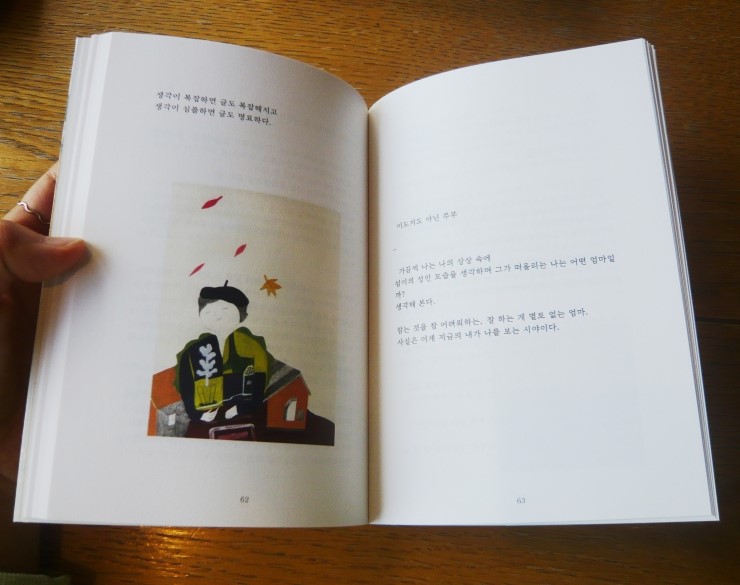 생각이 복잡하면 글도 복잡해지고
생각이 심플하면 글도 명료하다.
62
이도저도 아닌 주부
-
가끔씩 나는 나의 상상 속에
성인 모습을 생각하며 그가 떠올리는 나는 어떤 엄마일
까?
생각해 본다.
참는 것을 참 어려워하는, 잘 하는 게 별로 없는 엄마.
사실은 이게 지금의 내가 나를 보는 시야이다.
63